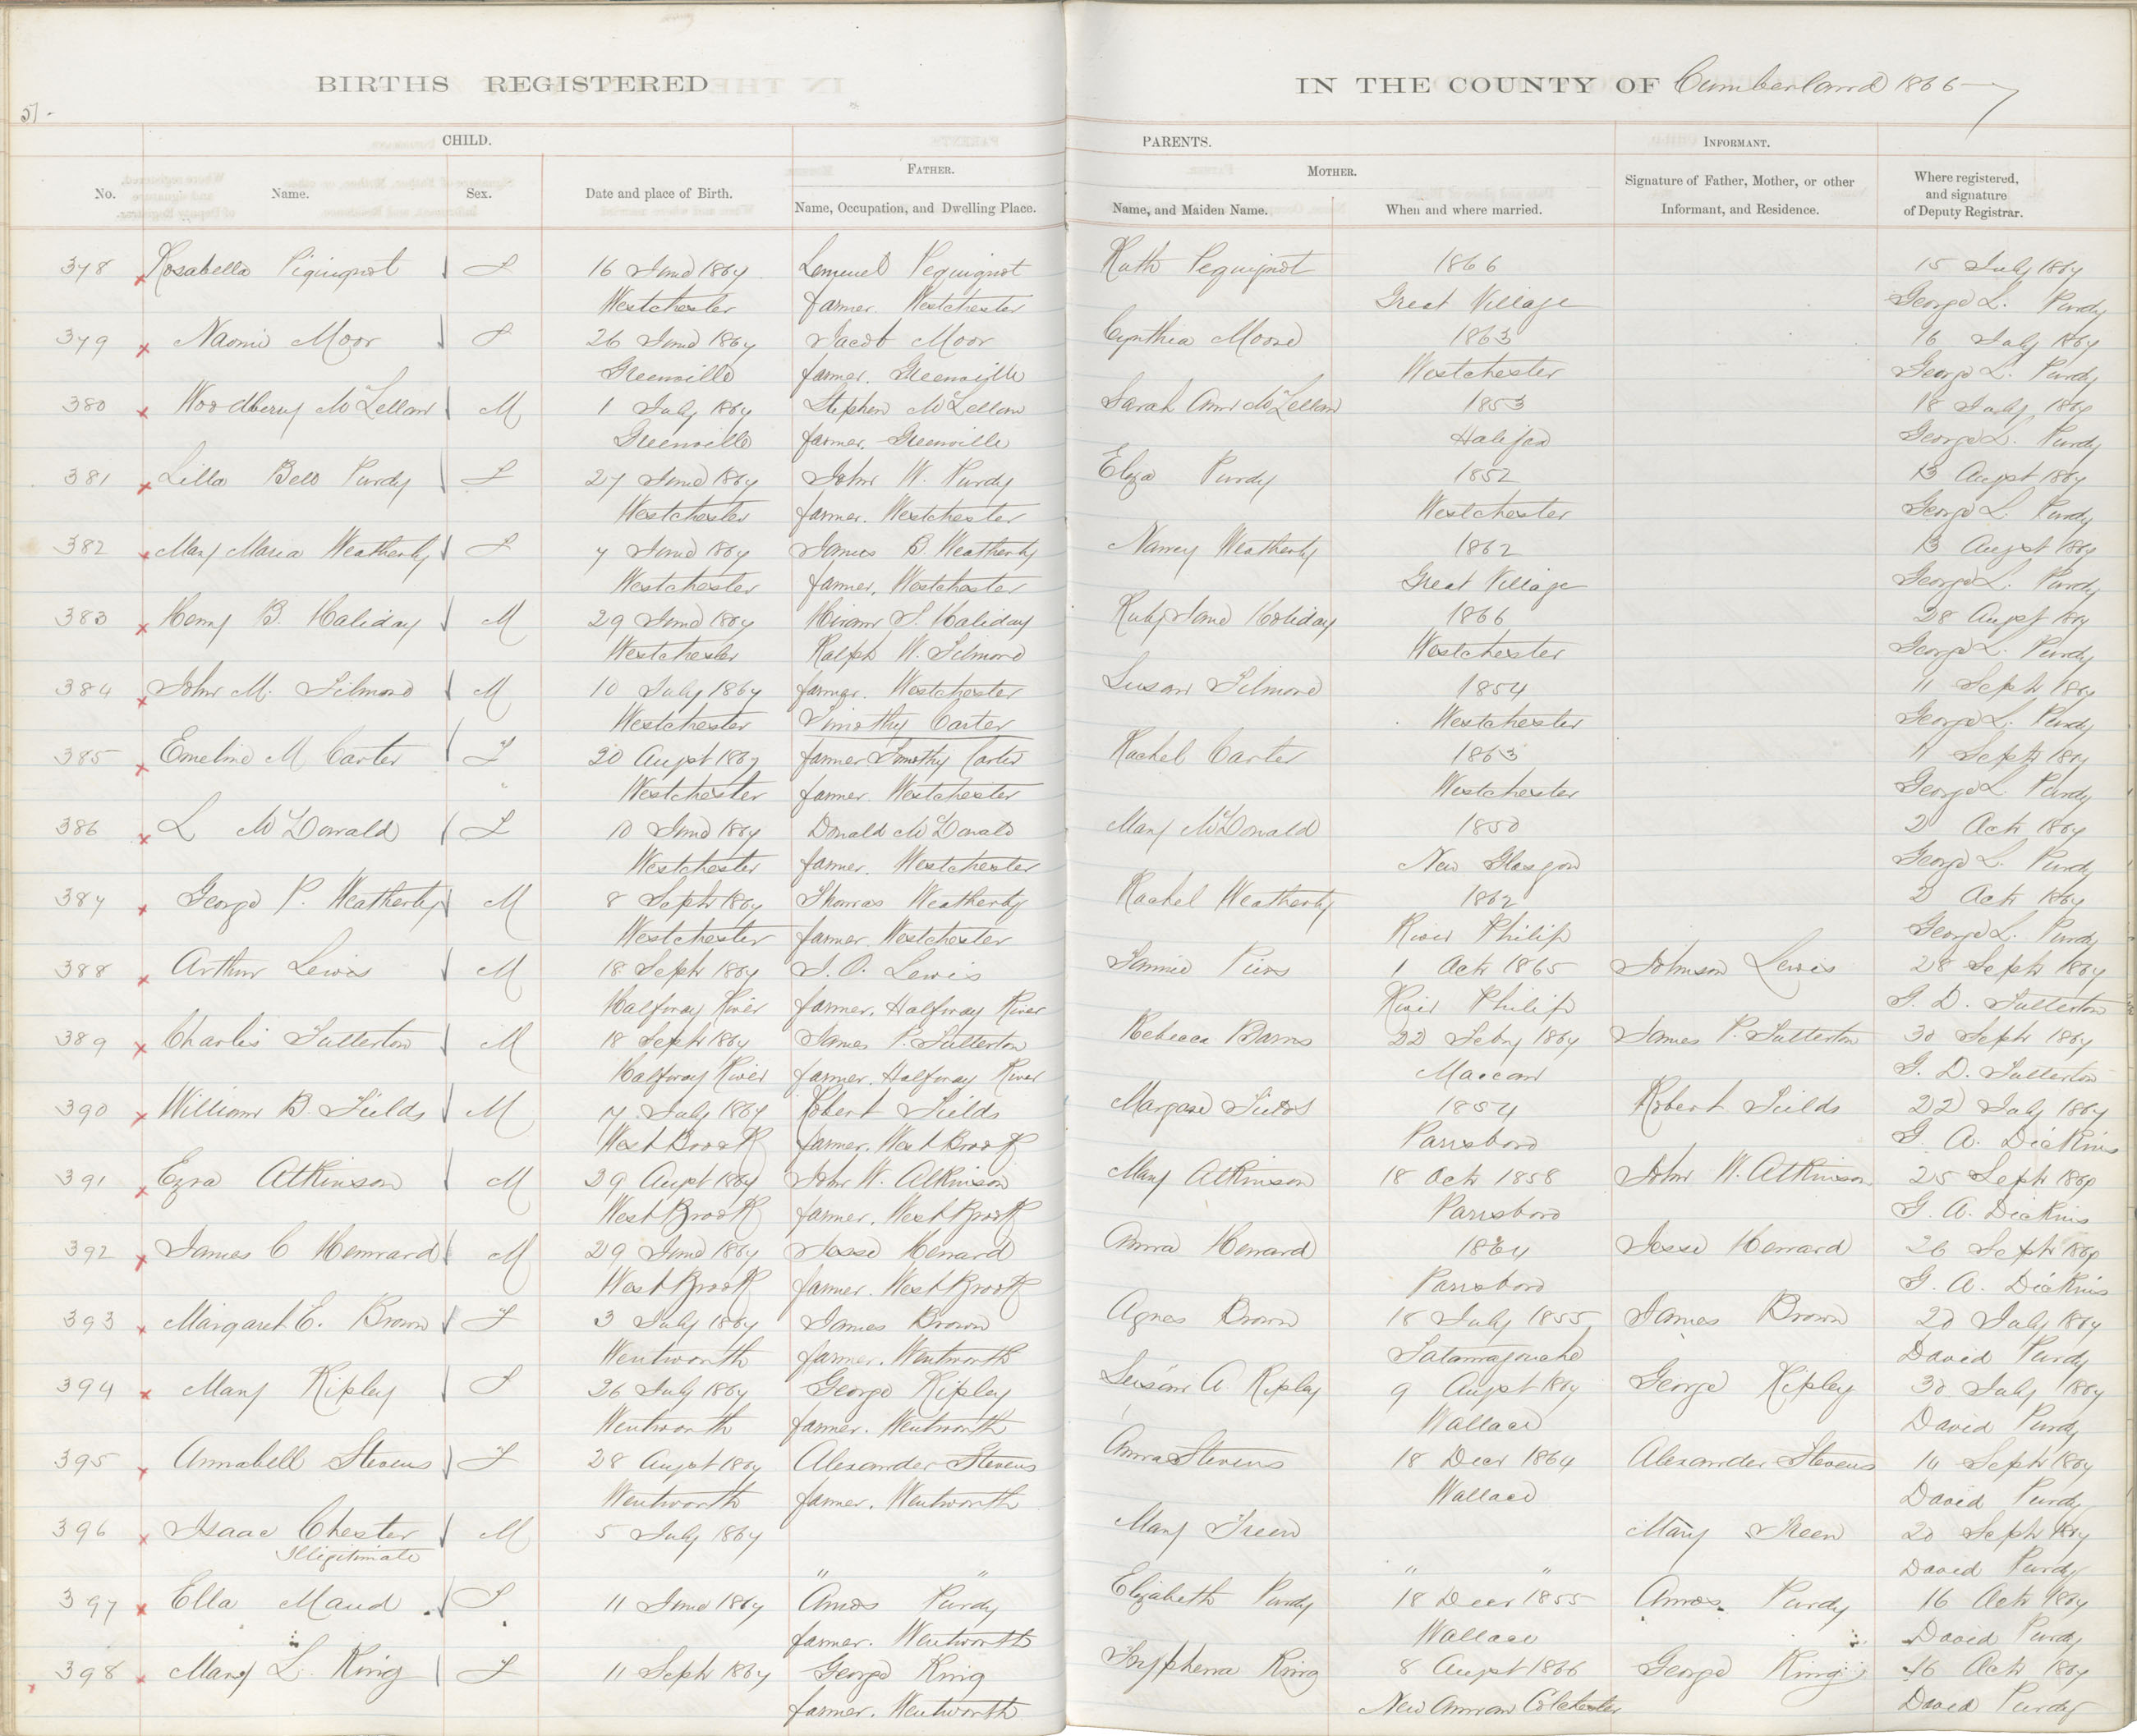 BIRTHS REGISTERED IN THE COUNTY OF Cumberland 1866-7
51-
CHILD. PARENTS. INFORMANT.
FATHER. MOTHER.
No. Name. Sex. Date and place of Birth. Name, Occupation, and Dwelling Place. Name, and Maiden Name. When and where married. Signature of Father, Mother, or other Informant, and Residence. Where registered, and signature of Deputy Registrar.
378 Rosabella Piquignot F 16 June 1867 Lemuel Pequignot Ruth Pequignot 1866 15 July 1867
Westchester farmer. Westchester Great Village George L. Purdy
379 Naomi Moor F 26 June 1867 Jacob Moor Cynthia Moore 1863 16 July 1867
Greenville farmer. Greenville Westchester George L. Purdy
380 Woodbery McLellan M 1 July 1867 Stephen McLellan Sarah Ann McLellan 1853 18 July 1867
Greenville farmer. Greenville Halifax George L. Purdy
381 Lilla Bell Purdy F 27 June 1867 John W. Purdy Eliza Purdy 1852 13 Augst 1867
Westchester farmer. Westchester Westchester George L. Purdy
382 Mary Maria Weatherby F 7 June 1867 James B. Weatherby Nancy Weatherby 1862 13 Augst 1867
Westchester farmer. Westchester Great Village George L. Purdy
383 Henry B. Haliday M 29 June 1867 Hiram S. Haliday Ruby Jane Holiday 1866 28 Augst 1867
Westchester Ralph W. Filmore Westchester George L. Purdy
384 John M. Filmore M 10 July 1867 farmer. Westchester Susan Filmore 1854 11 Septr 1867
Westchester Timothy Carter Westchester George L. Purdy
385 Emeline M Carter F 20 Augst 1867 farmer Timothy Carter Rachel Carter 1863 11 Septr 1867
Westchester farmer. Westchester Westchester George L Purdy
386 L McDonald F 10 June 1867 Donald McDonald Mary McDonald 1850 2 Octr 1867
Westchester farmer. Westchester New Glasgow George L. Purdy
387 George P. Weatherby M 8 Septr 1867 Thomas Weatherby Rachel Weatherby 1862 2 Octr 1867
Westchester farmer. Westchester River Philip George L. Purdy
388 Arthur Lewis M 18 Septr 1867 J. O. Lewis Fannie 1 Octr 1865 Johnson Lewis 28 Septr 1867
Halfway River farmer. Halfway River River Philip G. D. Fullerton
389 Charles Fullerton M 18 Septr 1867 James P. Fullerton Rebecca Barns 22 Feby 1867 James P. Fullerton 30 Septr 1867
Halfway River farmer. Halfway River Maccan G. D. Fullerton
390 William B. Fields M 17 July 1867 Robert Fields Margaret Fields 1854 Robert Fields 22 July 1867
West Brook farmer. West Brook Parrsboro G. A. Dickins
391 Ezra Atkinson M 29 Augst 1867 John W. Atkinson Mary Atkinson 18 Octr 1858 John W. Atkinson 25 Septr 1867
West Brook farmer. West Brook Parrsboro G. A. Dickins
392 James C Hennard M 29 June 1867 Jesse Henard Anna Henard 1864 Jesse Henard 26 Septr 1867
West Brook farmer. West Brook Parrsboro G. A. Dickins
393 Margaret E. Brown F 3 July 1867 James Brown Agnes Brown 18 July 1855 James Brown 20 July 1867
Wentworth farmer. Wentworth Tatamagouche David Purdy
394 Mary Ripley F 26 July 1867 George Ripley Susan A. Ripley 9 Augst 1867 George Ripley 30 July 1867
Wentworth farmer. Wentworth Wallace David Purdy
395 Annabell Stevens F 28 Augst 1867 Alexander Stevens Anna Stevens 18 Decr 1864 Alexander Stevens 10 Septr 1867
Wentworth farmer. Wentworth Wallace David Purdy
396 Isaac Chester M 5 July 1867 Mary Treen Mary Treen 20 Septr 1867
Illigitimate " " " " David Purdy
397 Ella Maud F 11 June 1867 Amos Purdy Elizabeth Purdy 18 Decr 1855 Amos Purdy 16 Octr 1867
farmer. Wentworth Wallace David Purdy
398 Mary L. King F 11 Septr 1867 George King Tryphena King 8 Augst 1866 George King 16 Octr 1867
farmer. Wentworth New Annan Colchester David Purdy